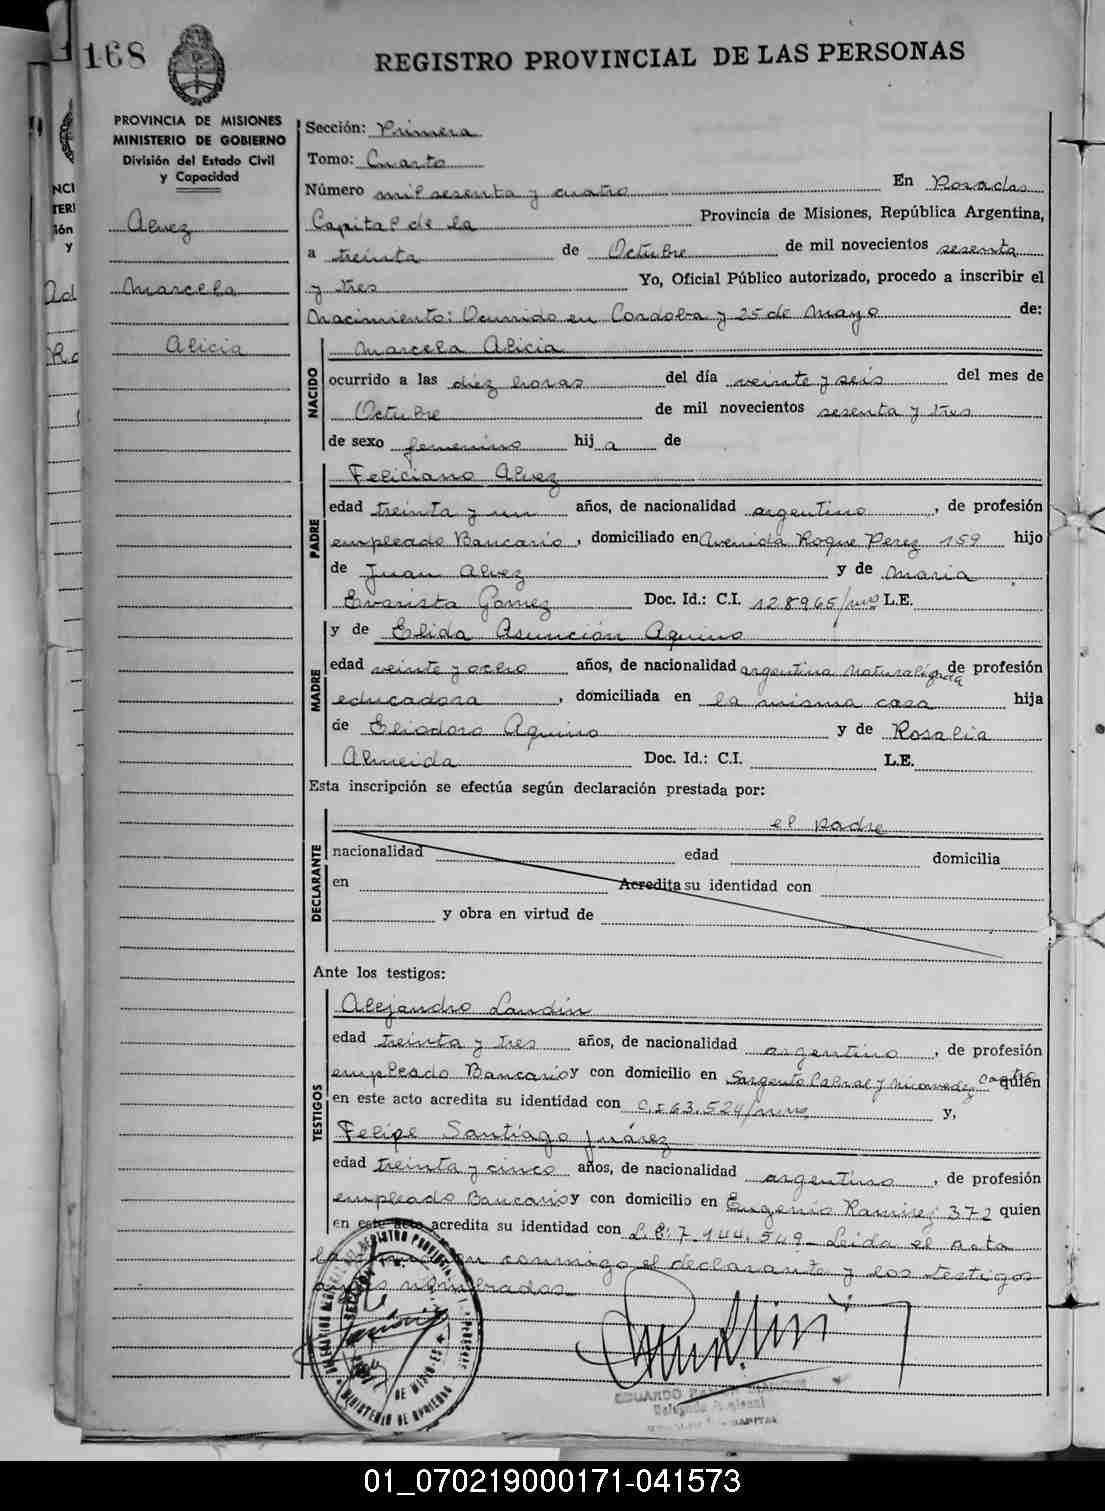 168
REGISTRO PROVINCIAL DE LAS PERSONAS
PROVINCIA DE MISIONES
MINISTERIO DE GOBIERNO
División del Estado Civil
y Capacidad
Alvez
Marcela
Alicia
Sección: Primera
Tomo: Cuarto
Número mil sesenta y cuatro En Posadas
Capital de la Provincia de Misiones, República Argentina,
a treinta de Octubre de mil novecientos sesenta
y tres Yo, Oficial Público autorizado, procedo a inscribir el
Nacimiento: Ocurrido en Cordoba y 25 de Mayo de:
NACIDO
Marcela Alicia
ocurrido a las diez horas del día veinte y seis del mes de
Octubre de mil novecientos sesenta y tres
de sexo femenino hij a de
PADRE
Feliciano Alvez
edad treinta y un años, de nacionalidad argentino, de profesión
empleado Bancario, domiciliado en Avenida Roque Perez 159 hijo
de Juan Alvez y de Maria
Evarista Gomez Doc. Id.: C.I. 128965/mns L.E.
MADRE
y de Elida Asunción Aquino
edad veinte y ocho años, de nacionalidad argentina naturalizada de profesión
educadora, domiciliada en la misma casa hija
de Eliodoro Aquino y de Rosalia
Almeida Doc. Id.: C.I. L.E.
Esta inscripción se efectúa según declaración prestada por:
DECLARANTE
el padre
nacionalidad edad domicilia
en Acredita su identidad con
y obra en virtud de
Ante los testigos:
TESTIGOS
Alejandro Landin
edad treinta y tres años, de nacionalidad argentino, de profesión
empleado Bancario y con domicilio en Sargento Cabral y Nicomedez Castro quien
en este acto acredita su identidad con C.I 63.524/mns y,
Felipe Santiago Juárez
edad treinta y cinco años, de nacionalidad argentino, de profesión
empleado Bancario y con domicilio en Eugenio Ramirez 372 quien
en este acto acredita su identidad con L.E. 7.144.549 Leida el acta
la en conmigo el declarante y los testigos
nombrados
EDUARDO
01_070219000171-041573